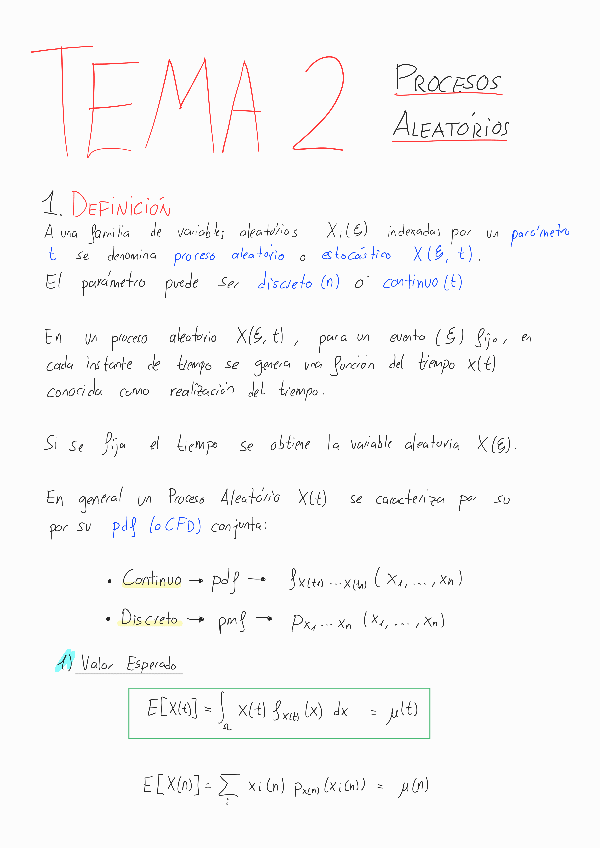 TEMA 2
PROCESOS
ALEATÓRIOS
1. DEFINICIÓN
A una familia de variables aleatórias X.(ξ) indexadas por un parámetro
t se denomina proceso aleatório o estocástico X(ξ, t).
El parámetro puede ser discreto (n) o continuo (t)
En un proceso aleatório X(ξ, t), para un evento (ξ) fijo, en
cada instante de tiempo se genera una función del tiempo x(t)
conocida como realización del tiempo.
Si se fija el tiempo se obtiene la variable aleatoria X(ξ).
En general un Proceso Aleatório X(t) se caracteriza por su
por su pdf (o CFD) conjunta:
• Continuo → pdf → fx(t1) ... x(tn) (x1, ..., xn)
• Discreto → pmf → px1 ... xn (x1, ..., xn)
1) Valor Esperado
E[X(t)] = ∫Ω x(t) fx(t) (x) dx = μ(t)
E[X(n)] = ∑i xi(n) px(n) (xi(n)) = μ(n)